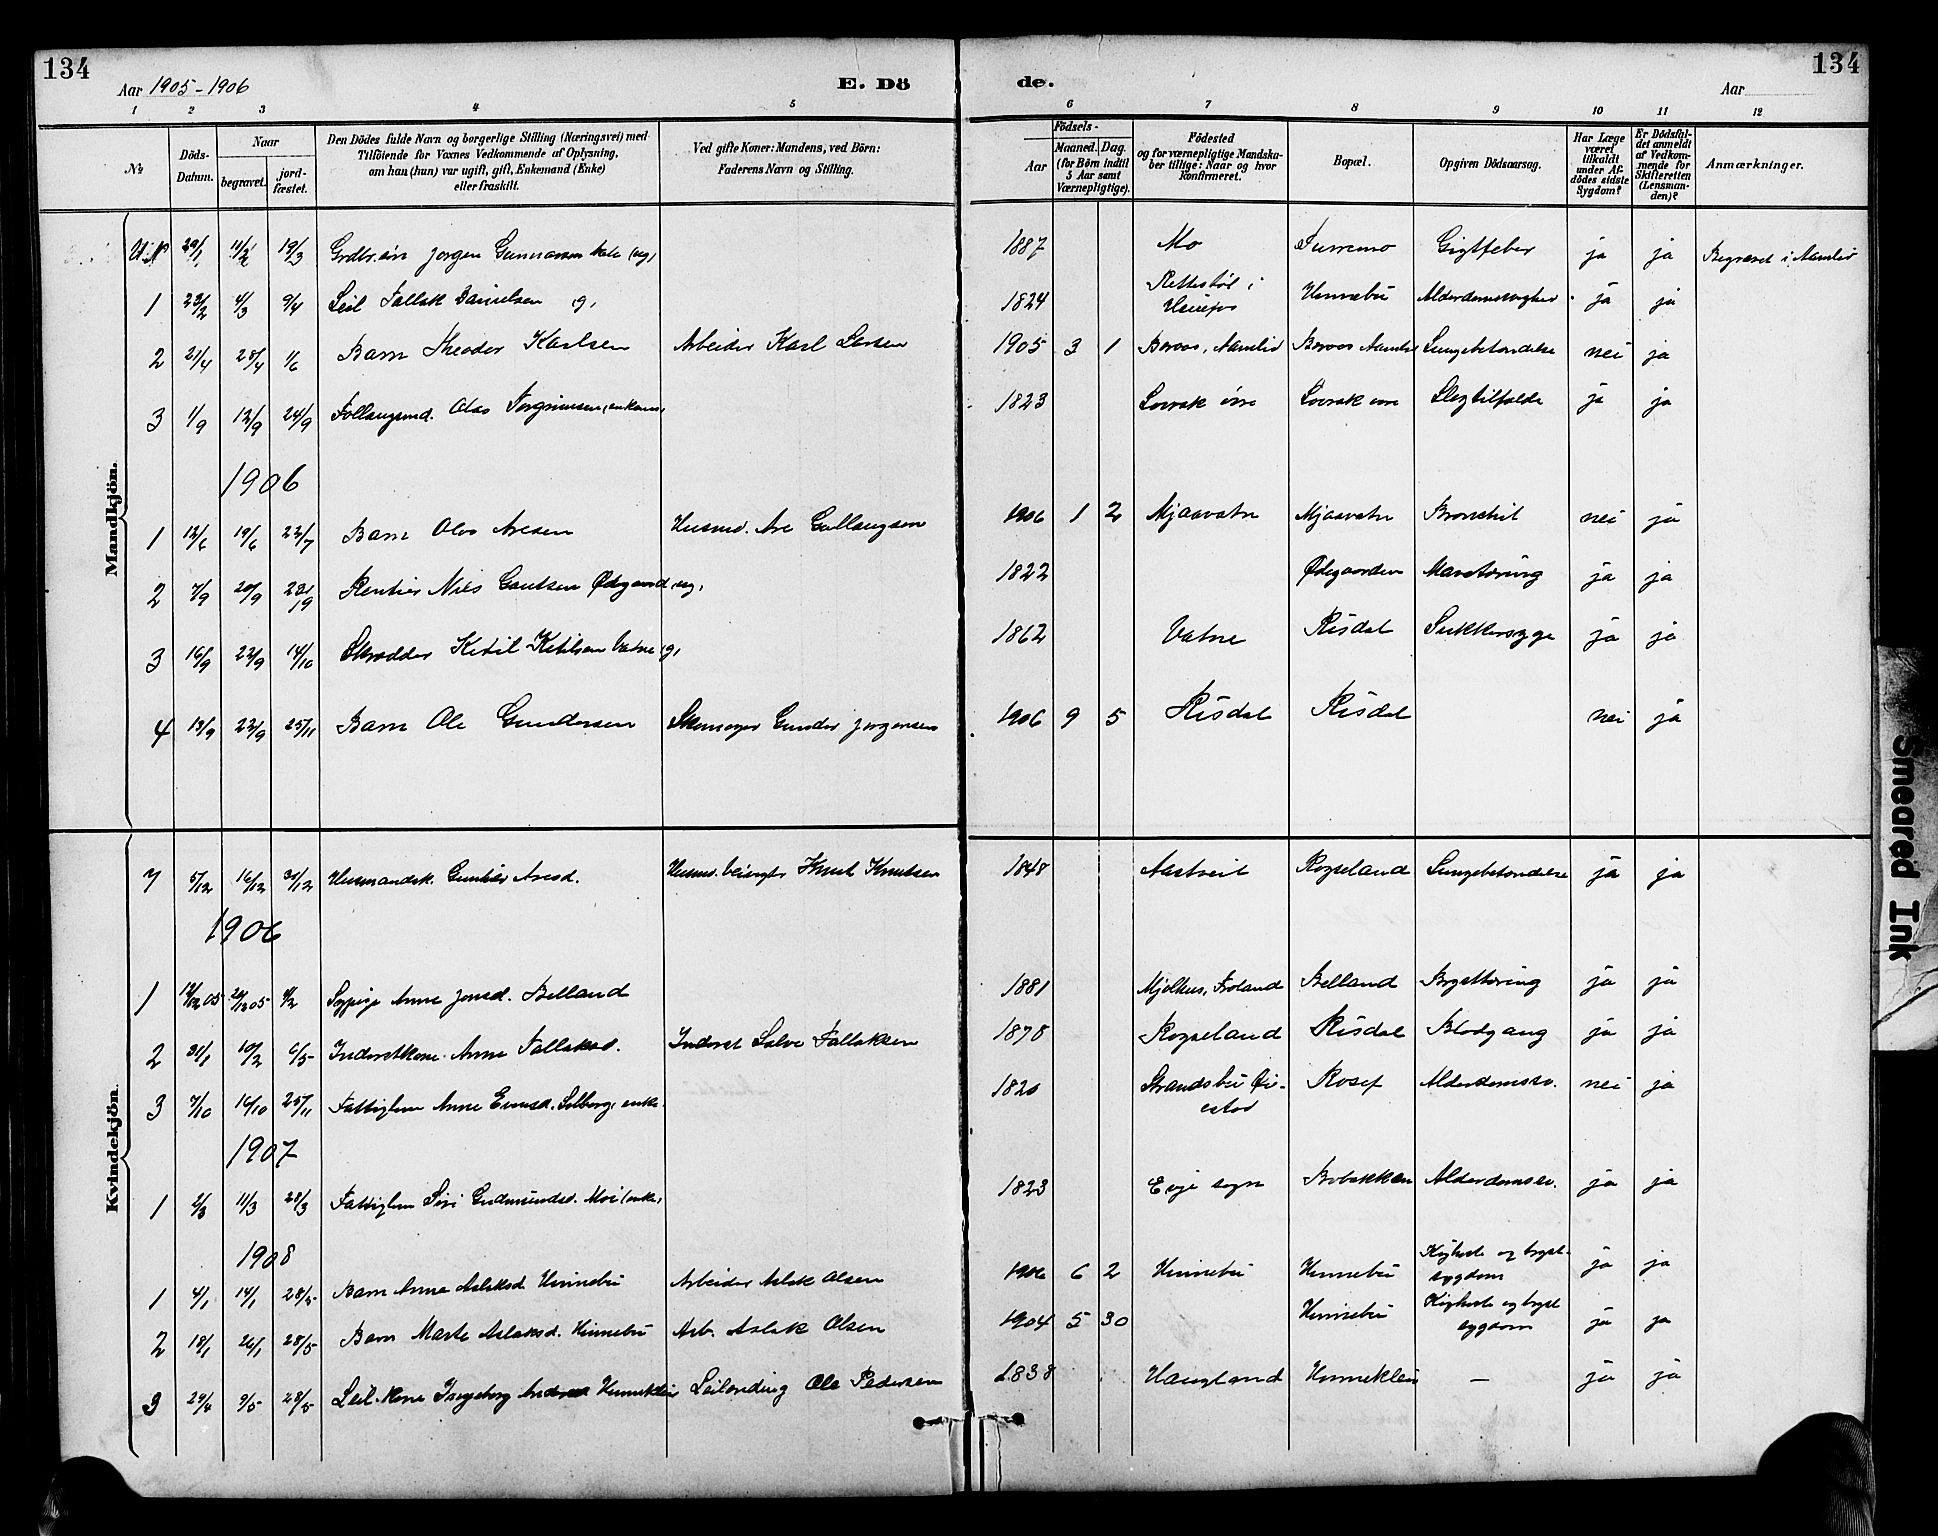 134
134
Aar 1905-1906
E. Dö
de.
Aar
1 2 3 4 5 6 7 8 9 10 11 12
No
Döds-Datum.
Naar
begravet.
jord-fæstet.
Den Dödes fulde Navn og borgerlige Stilling (Næringsvei) med
Tilföiende for Voxnes Vedkommende af Oplysning,
om han (hun) var ugift, gift, Enkemand (Enke)
eller fraskilt.
Ved gifte Koner: Mandens, ved Börn:
Faderens Navn og Stilling.
Födsels-
Aar
Maaned. Dag.
(for Börn indtil
5 Aar samt
Værnepligtige).
Födested
og for værnepligtige Mandska-
ber tillige: Naar og hvor
konfirmeret.
Bopæl.
Opgiven Dödsaarsag.
Har Læge
været
tilkaldt
under Af-
dödes sidste
Sygdom?
Er Dödsfal-
det anmeldt
af Vedkom-
mende for
Skifteretten
(Lensman-
den)?
Anmærkninger.
Mandkjön.
29/1 11/2 19/3 Jørgen Gunnarsen 1887 Mo Furremo Gigtfeber ja ja Begravet i Aamlid
1 23/2 4/3 9/4 Leil Tallak Danielsen g, 1824 Hinnebu ja ja
2 21/4 28/4 1/6 Barn Theodor Karlsen Arbeider Karl Larsen 1905 3 1 Boroos, Aamlid Boroos Aamlid Lungebetændelse nei ja
3 1/9 12/9 24/9 Olav Torgrimsen, enkem, 1823 Lovrak øvre Lovrak øvre Slagtilfælde ja ja
1906
1 12/6 19/6 22/7 Barn Olav Aresen Husmd. Are Gullaugsen 1906 1 2 Mjaavatn Mjaavatn Bronchit nei ja
2 7/9 20/9 23/9 Rentier Niels Gautsen Ødegaard, ug, 1822 Ødegaarden Mavetæring ja ja
3 16/9 22/9 14/10 Skrædder Ketil Ketilsen Vatne, g, 1862 Vatne Risdal Sukkersyge ja ja
4 13/9 22/9 25/11 Barn Ole Gundersen Skomager Gunder Jørgensen 1906 9 5 Risdal Risdal nei ja
Kvindekjön.
7 5/12 16/12 31/12 Husmandsk. Gunhild Aresd. Husmd. Knut Knutsen 1848 Aastveit Ropseland Lungebetændelse ja ja
1906
1 12/12 05 20/12 05 4/2 Sypige Anne Jonsd. Belland 1881 Mjølhus, Froland Belland Brysttæring ja ja
2 31/1 10/2 6/5 Inderstkone Anne Tallaksd. Inderst Salve Tallaksen 1878 Ropseland Risdal Blodgang ja ja
3 7/10 16/10 25/11 Fattiglem Anne Evensd. Solberg, enke. 1820 Strandsbu Øi-
estad Rosef Alderdomssv. nei ja
1907
1 2/3 11/3 28/3 Fattiglem Siri Gudmundsd. Moi (enke) 1823 Evje sogn Bobakken Alderdomssv. ja ja
1908
1 4/1 14/1 28/5 Barn Anne Aslaksd. Hinnebu Arbeider Aslak Olsen 1906 6 2 Hinnebu Hinnebu Kighoste og bryst-
sygdom ja ja
2 18/1 26/1 28/5 Barn Marte Aslaksd. Hinnebu Arb. Aslak Olsen 1904 5 30 Hinnebu Kighoste og bryst
sygdom ja ja
3 29/4 9/5 28/5 Leil. kone Ingeborg Hinneklei Leilending Ole Pedersen 1838 Haugland Hinneklei — ja ja
Smeared Ink